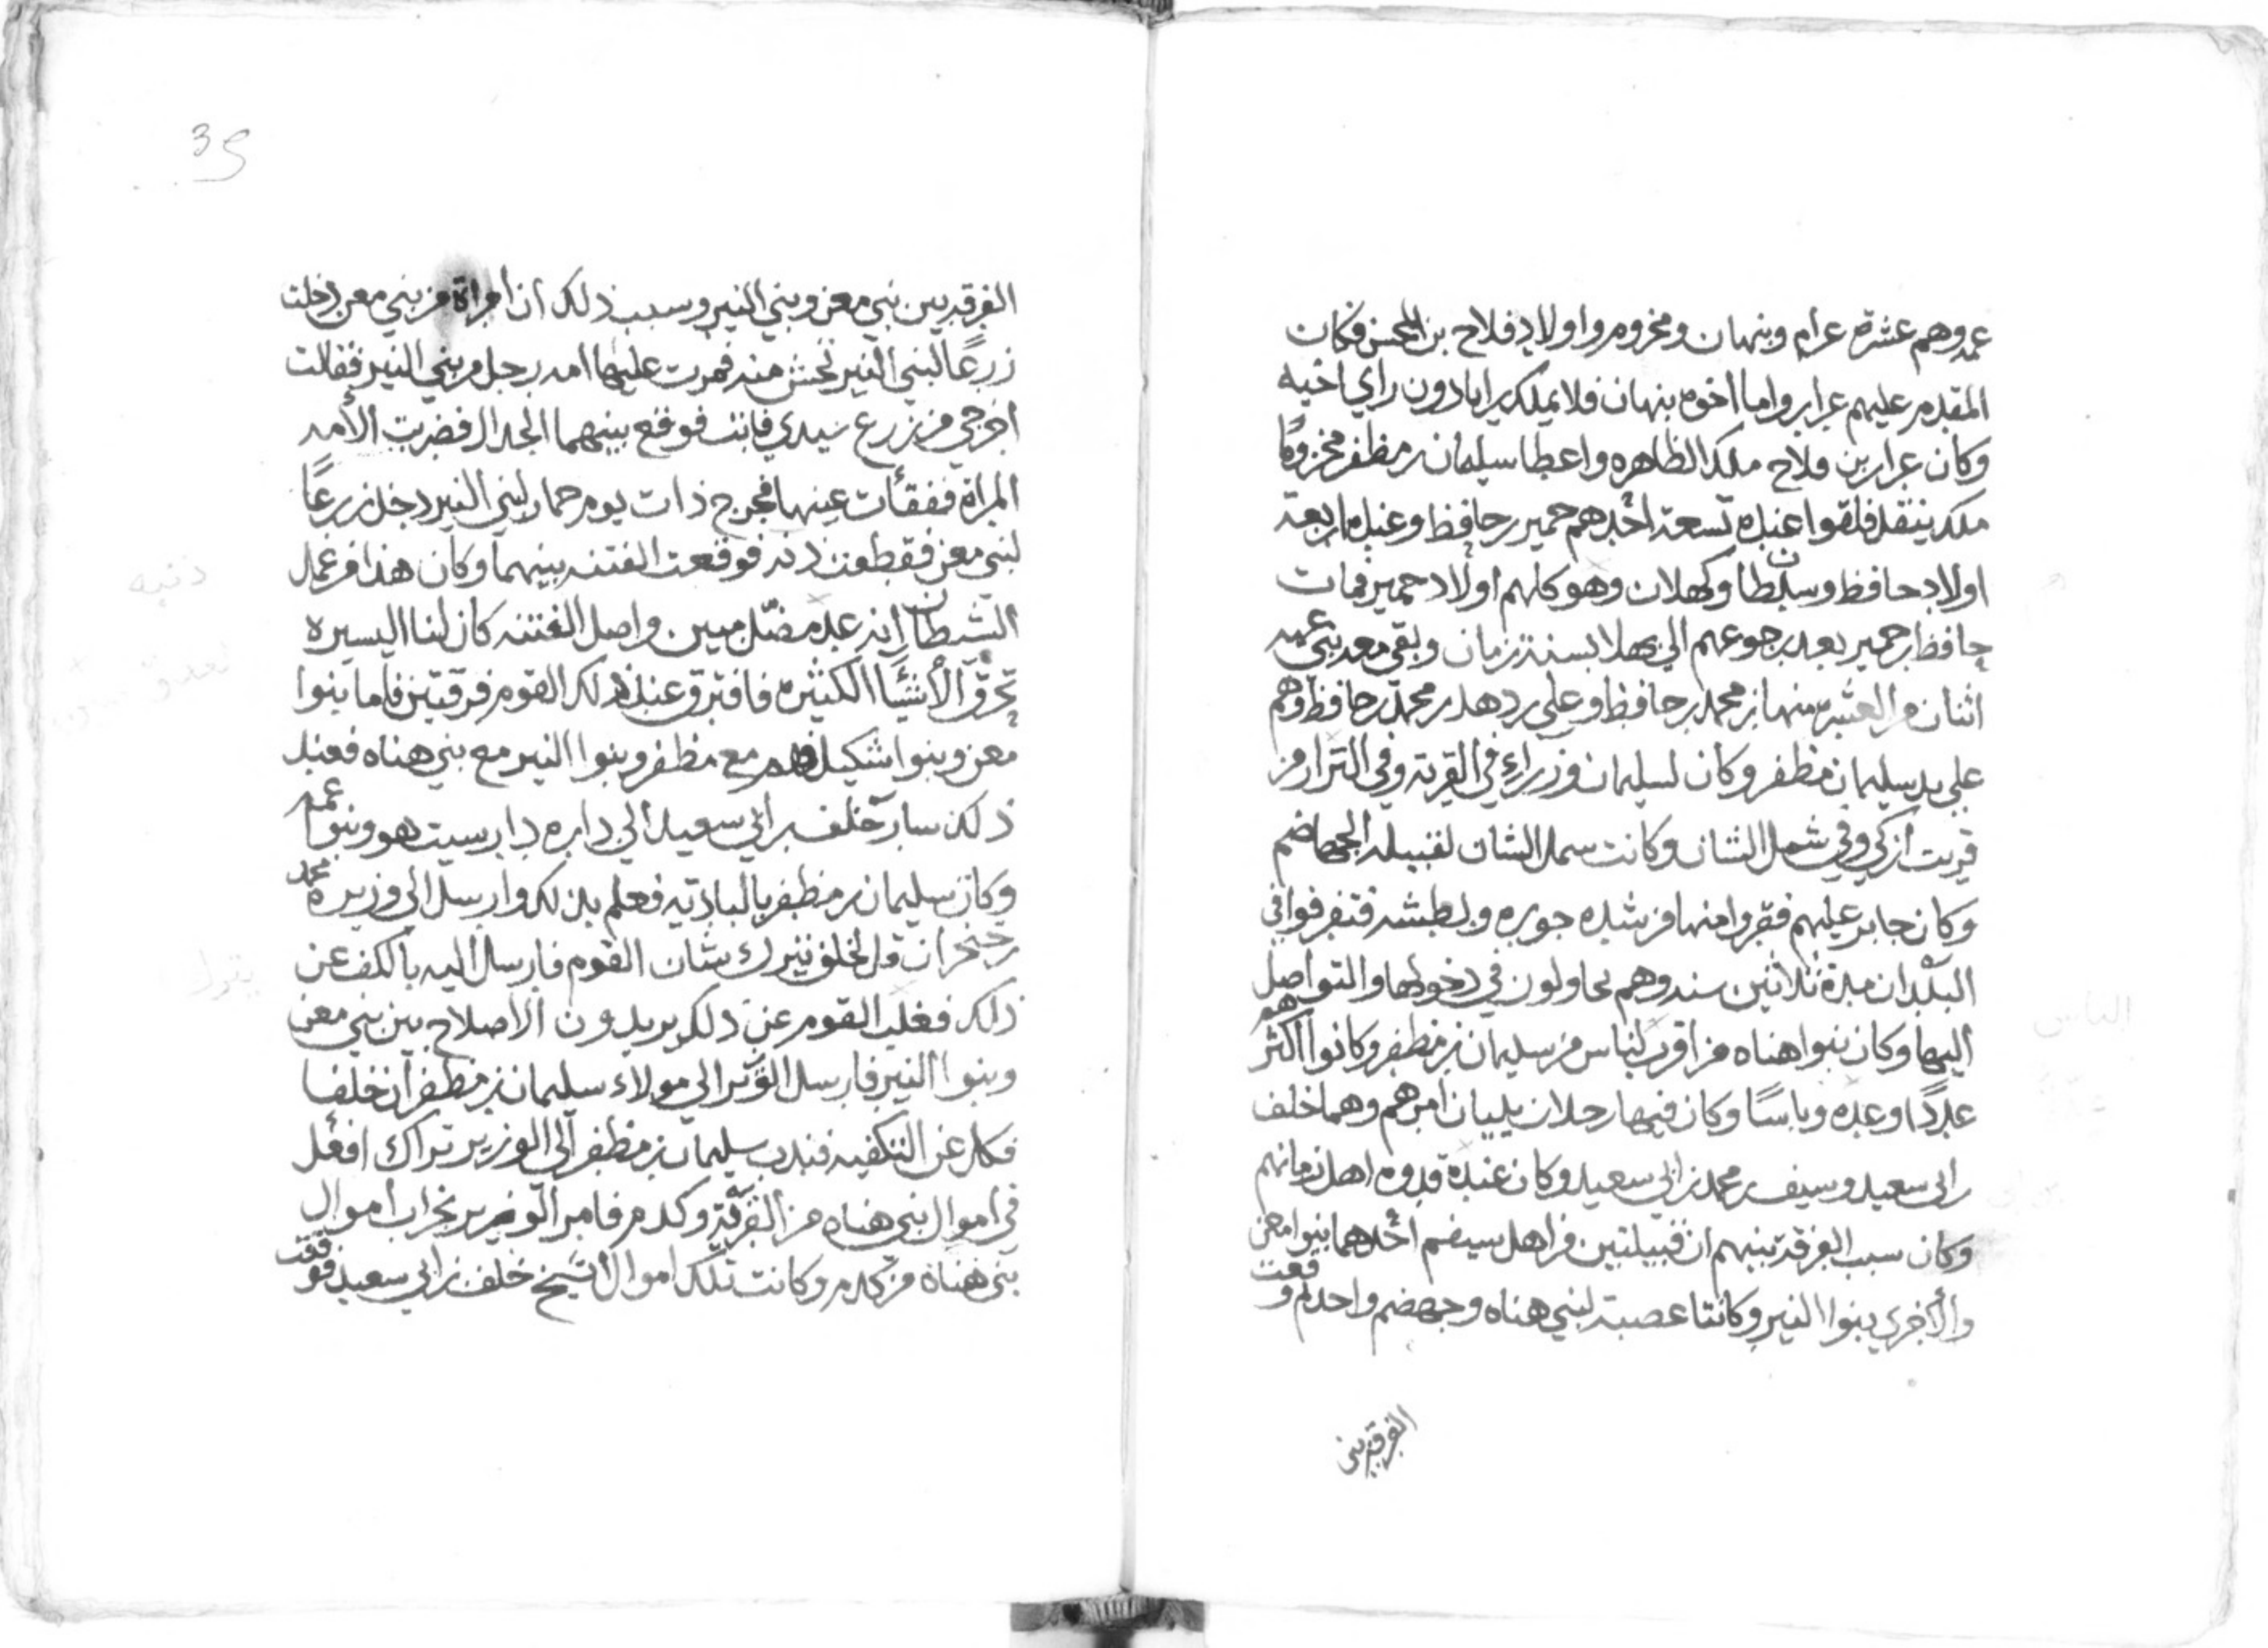 عمه وهم عشرة عرام ونبهان ومخزوم واولاد فلاح بن المحسن فكان
المقدم عليهم عرار واما اخوه نبهان فلا يملك رايا دون راي اخيه
وكان عرار بن فلاح ملك الظاهره واعطا سليمان بن مظفر مخزومًا
ملك ينقل فلقوا عنده تسعة احدهم حمير بن حافظ وعنده اربعة
اولاد حافظ وسلطان وكهلان وهو كلهم اولاد حمير فمات
حافظ بن حمير بعد رجوعهم الي بهلا بسنة زمان وبقي معه بني عمه
اثنان من العشره منهما بن محمد بن حافظ وعلي بن دهل بن محمد بن حافظ وهم
علي يد سليمان بن مظفر وكان لسليمان وزراء في القرية وفي النزار من
قريت ازكي وفي شمل الشان وكانت سمل الشان لقبيلة الجهاضم
وكان جابر عليهم ففروا منها من شده جوره وبطشه فتفرقوا في
البلدان مدة ثلاثين سنه وهم يحاولون في دخولها والتواصل
اليها وكان بنوا هناه من اقرب الناس من سليمان بن مظفر وكانوا اكثرهم
عددًا وعده وباسًا وكان فيها رجلان يليان امرهم وهما خلف
بن ابي سعيد وسيف بن محمد بن ابي سعيد وكان عنده قدوه اهل زمانهم
وكان سبب الفرقة بينهم ان قبيلتين من اهل سيفم احدهما بنوا معن
والأخري بنوا النير وكانتا عصبة لبني هناه وجهضم واحدهم وقعت
الفرقة بين
39
الفرقة بين بني معن وبني النير وسبب ذلك ان امراة من بني معن دخلت
زرعًا لبني النير تحش منه فمرت عليها امه رجل من بني النير فقالت
اخرجي من زرع سيدي فابت فوقع بينهما الجدال فضربت الأمه
المراة ففقأت عينها فخرج ذات يوم حمار لبني النير دخل زرعًا
لبني معن فقطعت اذنه فوقعت الفتنه بينهما وكان هذا من عمل
الشيطان انه عدو مضّل مبين واصل الفتنه كان لنا اليسيره
تحرق الأشيا الكثيره فافترق عند ذلك القوم فرقتين فاما بنوا
معن وبنوا شكيل فهم مع مظفر وبنوا النير مع بني هناه فعند
ذلك سار خلف بن ابي سعيد الي داره دار سيت هو وبنو عمه
وكان سليمان بن مظفر بالبادية فعلم بذلك وارسل الي وزيره محمد
بن خنجر ان قل لخلف يترك شان القوم فارسل اليه بالكف عن
ذلك فغلب القوم عن ذلك يريدون الاصلاح بين بني معن
وبنوا النير فارسل الوزير الي مولاه سليمان بن مظفر ان خلفا
فكل عن التكفيه فندب سليمان بن مظفر الي الوزير تراك افعل
في اموال بني هناه من القرية وكدم فامر الوزير بخراب اموال
بني هناه من كدم وكانت تلك اموال الشيخ خلف بن ابي سعيد فوقعت